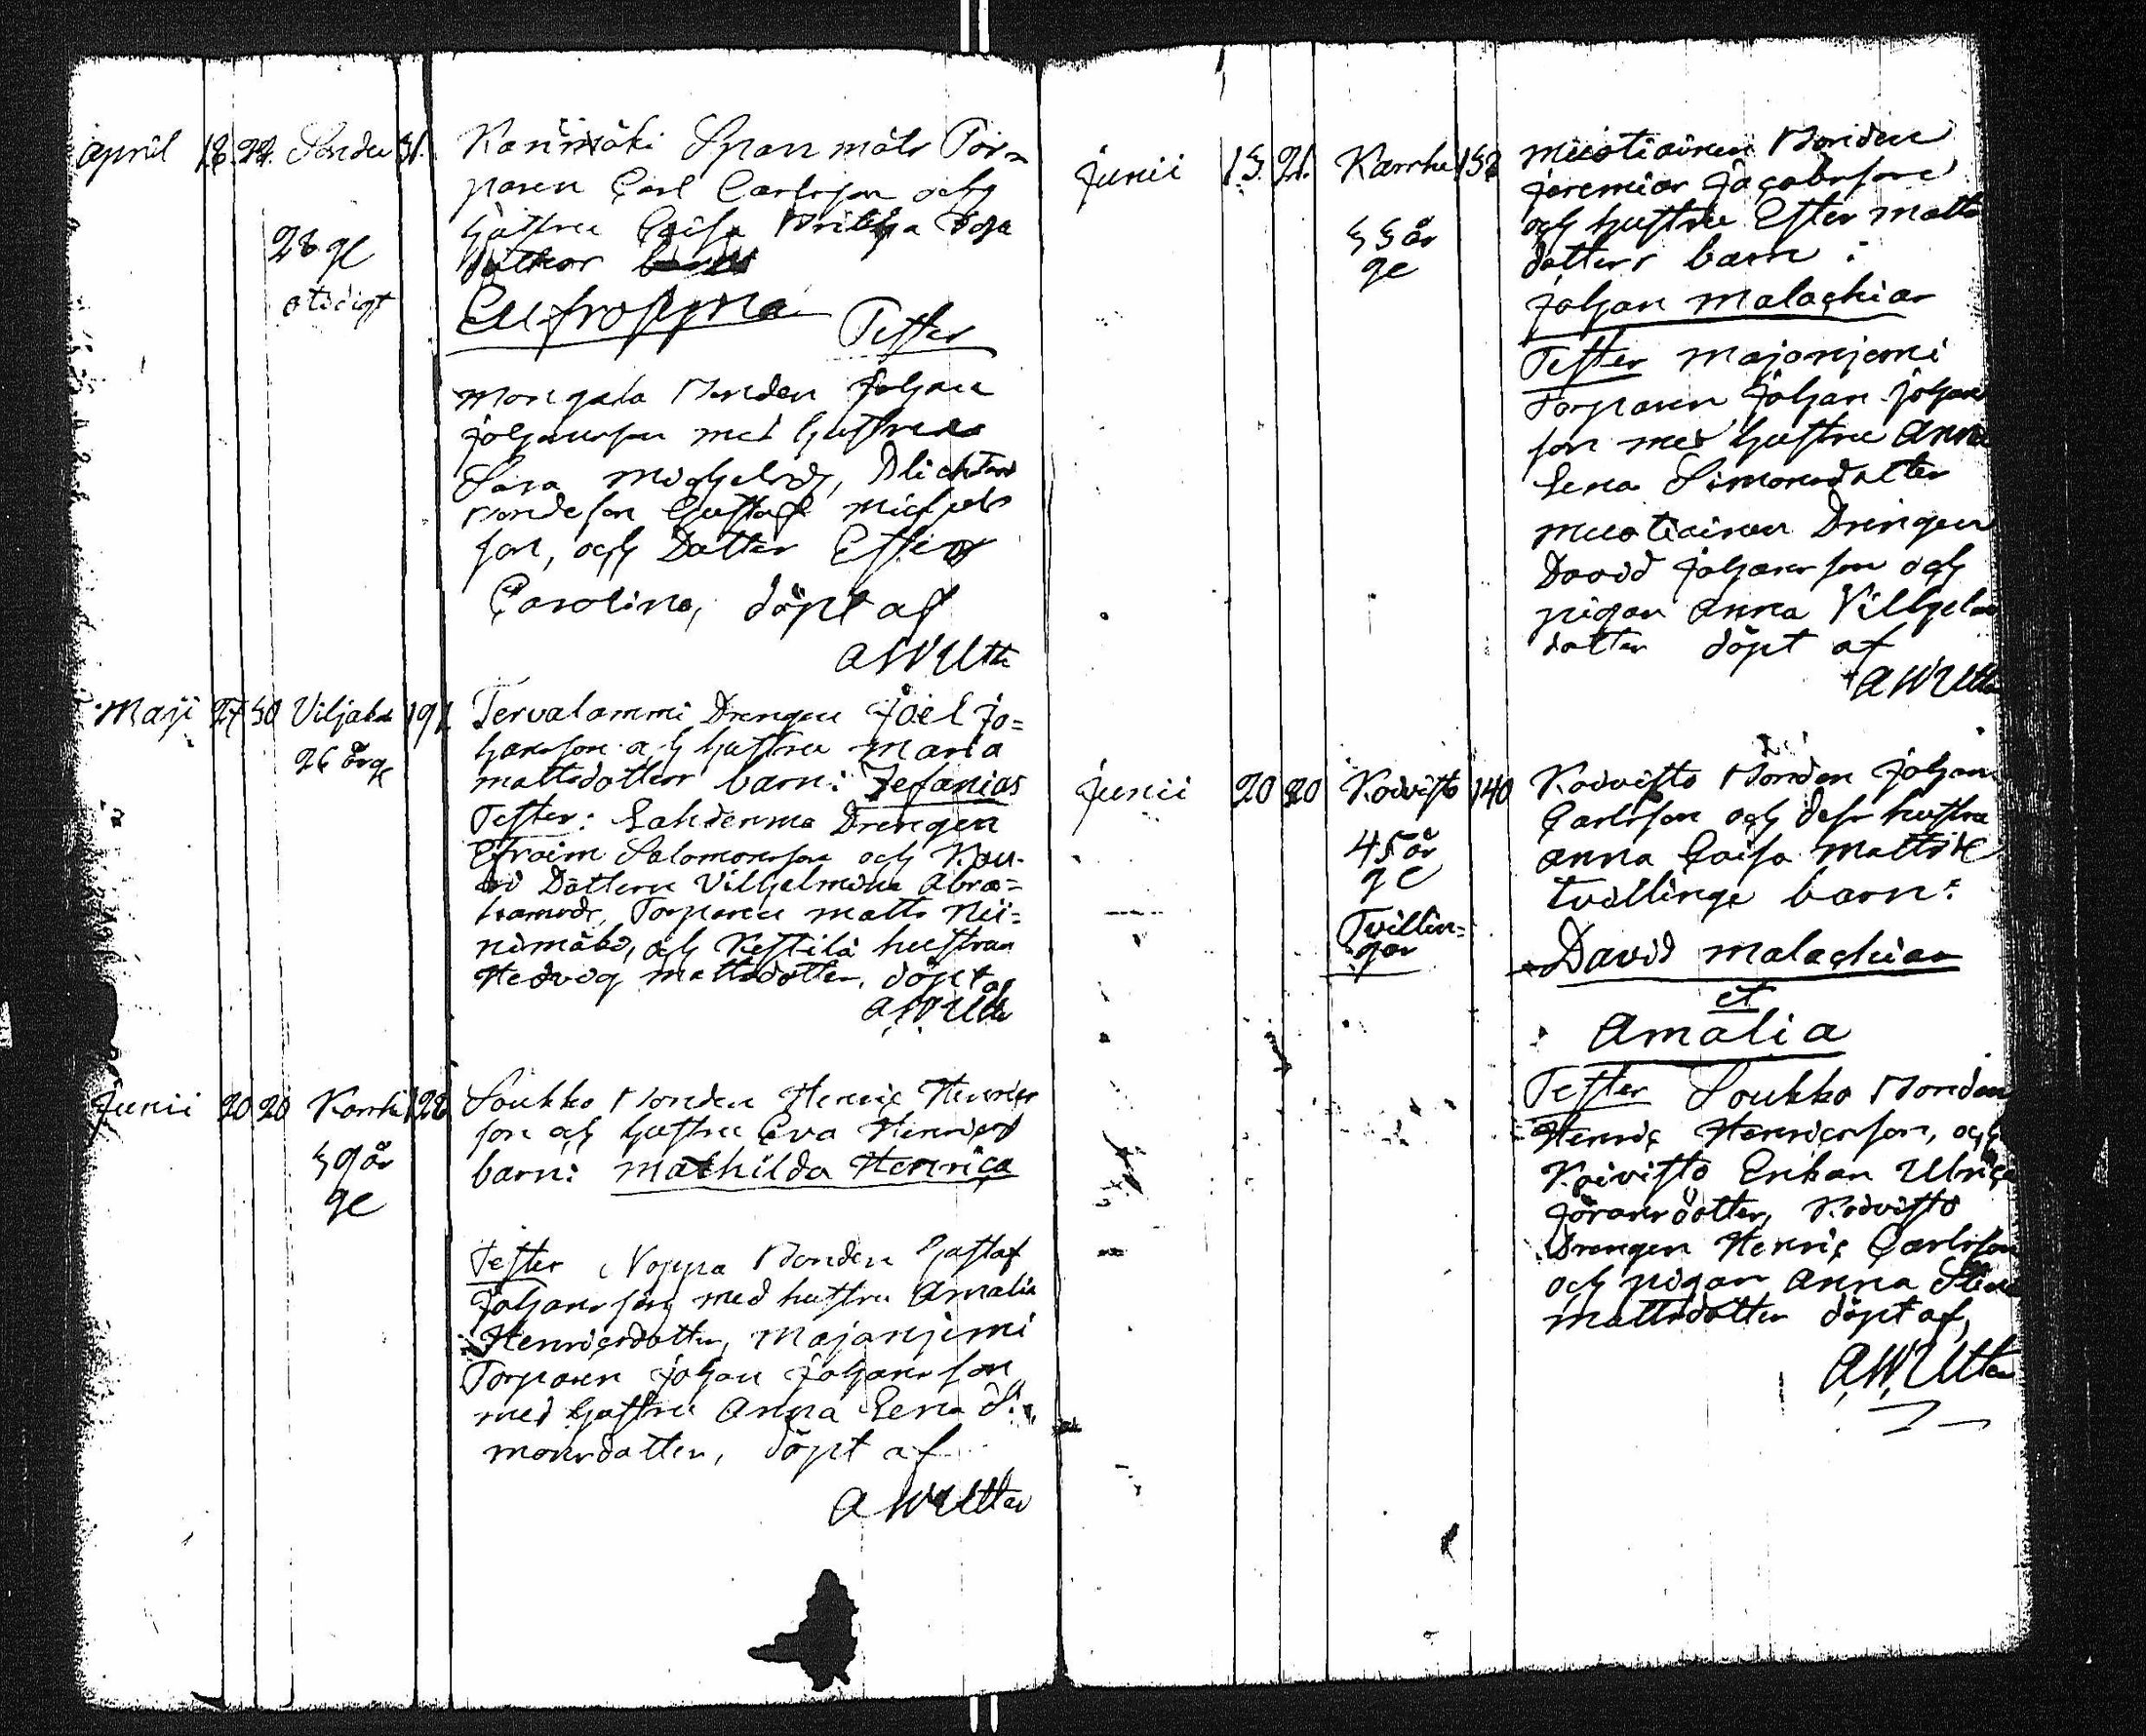 April 18. 24. Sondu 31. Karimäki Spanmåls Tor-
paren Carl Carlsson och
hustru Caisa
28 ge
dotter
otidigt
Eufrosyna Tester
Mangala Bonden Johan
Johansson med hustru
Sara Michelsdr,
Bondeson Gustaf Michels
son, och Dotter Ester
Carolina, döpt af
A W Utter
Maji 27 30 Viljaka 191. Tervalammi Drengen Joel Jo=
26 årge
hansson och hustru Maria
Mattsdotters barn: Zefanias
Tester: Lahdenma Drengen
Efraim Salomonsson och
Dottern Vilhelmina Abra=
hamsdr, Torparen Matts Nii=
nimäki, och Kestilä hustrun
Hedvig Mattsdotter, döpt af
A W Utter
Junii 20 20 Karrhi 128 Soukko Bonden Henric Henrics
son och hustru Eva Henricsd
39 år
barn: Mathilda Henrica
ge
Tester Noppa Bonden Gustaf
Johansson med hustru Amalia
Henricsdotter, Majanjemi
Torparen Johan Johansson
med hustru Anna Lena Si=
monsdotter, döpt af
A W Utter
Junii 13. 21. Karrhe 132 Mustiainen Bonden
Jeremias Jacobsson
och hustru Ester Matts
33 år
dotters barn:
ge
Johan Malachias
Tester Majanjemi
Torparen Johan Johans
son med hustru Anna
Lena Simonsdotter
Mustiainen Drengen
David Johansson och
pigan Anna Vilhelms
dotter döpt af
A W Utter
Junii 20 20 Koivisto 140 Koivisto Bonden Johan
Carlsson och dess hustru
45 år
Anna Caisa Mattsd
ge
tvillinge barn:
Tvillin=
gar
David Malachias
et
Amalia
Tester Soukko Bonden
Henric Henricsson, och
Koivisto Enkan Ulrica
Jöransdotter, Koivisto
Drengen Henric Carlsson
och pigan Anna
Mattsdotter döpt af,
A W Utter